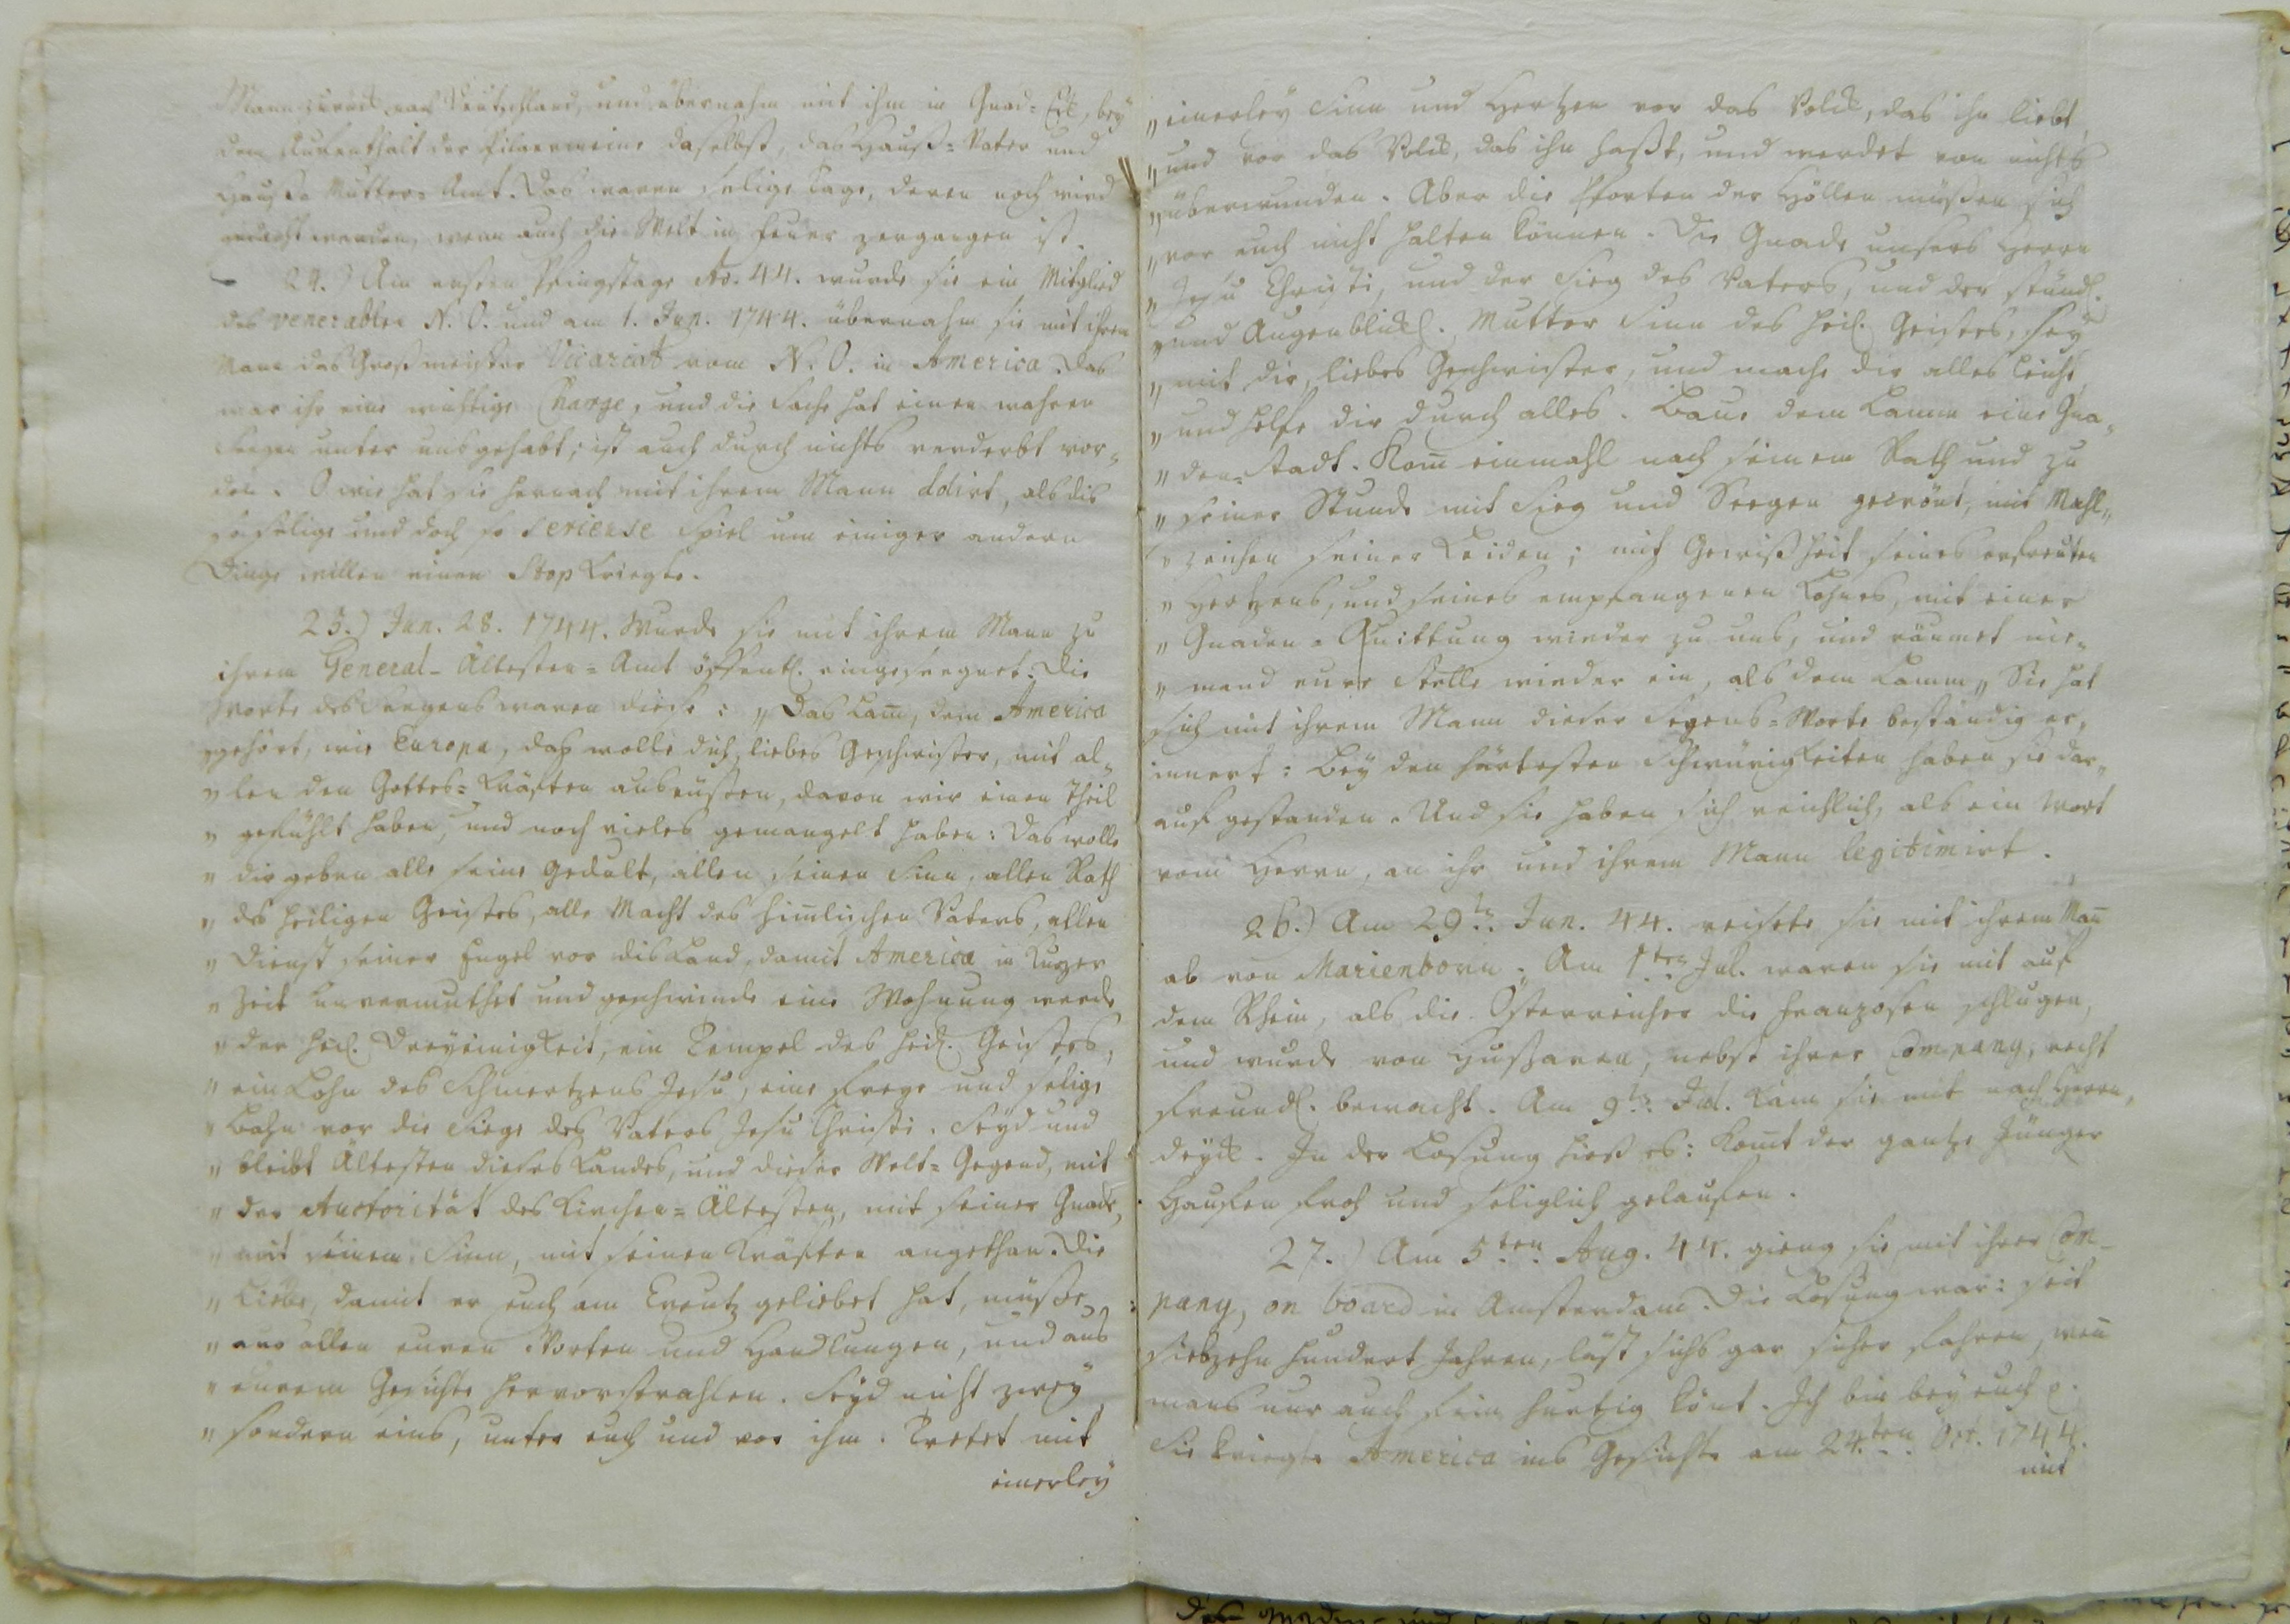 Mann zurück nach Deutschland, und übernahm mit ihm in Gnad-Eck, bey
dem Aufenthalt der Pilgergemeine daselbst, das Hauß-Vater und
Hauß Mutter Amt. Das waren selige Tage, deren noch wird
gedacht werden, wenn auch die Welt in Feuer zergangen ist.
24.) Am ersten Pfingsttage Ao. 44. wurde sie ein Mitglied
des venerablen N. O. und am 1. Jun. 1744. übernahm sie mit ihrem
Mann das Großmeister Vicariat vom N. O. in America. Das
war ihr eine wichtige Charge, und die Sache hat einen wahren
Seegen unter uns gehabt; ist auch durch nichts verderbt wor-
den. O wie hat sie hernach mit ihrem Mann dolirt, als dis
so selige und doch so serieuse Spiel um einiger andern
Dinge willen einen Stop kriegte.
25.) Jun. 28. 1744. Wurde sie mit ihrem Mann zu
ihrem General-Ältesten-Amt öffentl. eingeseegnet. Die
Worte des Seegens waren diese: „Das Lam̄, dem America
„gehört, wie Europa, das wolle dich, liebes Geschwister, mit al-
„len den Gottes-Kräften ausrüsten, davon wir einen Theil
„gefühlt haben, und noch vieles gemangelt haben: Das wolle
„dir geben alle seine Gedult, allen seinen Sinn, allen Rath
„des heiligen Geistes, alle Macht des him̄lischen Vaters, allen
„Dienst seiner Engel vor dis Land, damit America in kurzer
„Zeit unvermuthet und geschwinde eine Wohnung werde
„der heil. Dreyeinigkeit, ein Tempel des heil. Geistes,
„ein Lohn des Schmertzens Jesu, eine freye und selige
„Bahn vor die Siege des Vaters Jesu Christi. Seyd und
„bleibt Ältesten dieses Landes, und dieser Welt-Gegend, mit
„der Auctorität des Kirchen-Ältesten, mit seiner Gnade,
„mit seinem Sinn, mit seinen Kräften angethan. Die
„Liebe, damit er euch am Creutz geliebet hat, müsse
„aus allen euren Worten und Handlungen, und aus
„eurem Gesichte hervorstrahlen. Seyd nicht zwey
„sondern eins, unter euch und vor ihm. Tretet mit
einerley
„einerley Sinn und Hertzen vor das Volck, das ihn liebt,
„und vor das Volck, das ihn haßt, und werdet von nichts
„überwunden. Aber die Pforten der Höllen müßen sich
„vor euch nicht halten können. Die Gnade unsers Herrn
„Jesu Christi, und der Sieg des Vaters, und der stündl.
„und Augenblickl. Mutter Sinn des heil. Geistes, sey
„mit dir, liebes Geschwister, und mache dir alles leicht,
„und helfe dir durch alles. Baue dem Lamm eine Gna-
„den-Stadt. Kom̄ einmahl nach seinem Rath und zu
„seiner Stunde mit Sieg und Seegen gecrönt, mit Mahl-
„zeichen seiner Leiden; mit Gewißheit seines erfreuten
„Hertzens, und seines empfangenen Lohnes, mit einer
„Gnaden-Quittung wieder zu uns, und räumet nie-
„mand eure Stelle wieder ein, als dem Lamm„ Sie hat
sich mit ihrem Mann dieser Segens-Worte beständig er-
innert: Bey den härtesten Schwürigkeiten haben sie dar-
auf gestanden. Und sie haben sich reichlich, als ein Wort
vom Herrn, an ihr und ihrem Mann legitimirt.
26.) Am 29ten Jun. 44. reisete sie mit ihrem Man̄
ab von Marienborn. Am 1ten Jul. waren sie mit auf
dem Rhein, als die Österreicher die Franzosen schlugen,
und wurde von Hussaren, nebst ihrer Company, recht
freundl. bewacht. Am 9ten Jul. kam sie mit nach Heeren-
dyck. In der Losung hieß es: Kom̄t der gantze Jünger
Haufen froh und seliglich gelaufen.
27.) Am 5ten Aug. 44. gieng sie mit ihrer Com-
pany, on board in Amsterdam. Die Losung war: Seit
siebzehn hundert Jahren, läst sichs gar sicher fahren, wen̄
mans nur auch fein hurtig könt. Ich bin bey euch p.
Sie kriegte America ins Gesichte am 24ten Oct. 1744.
mit